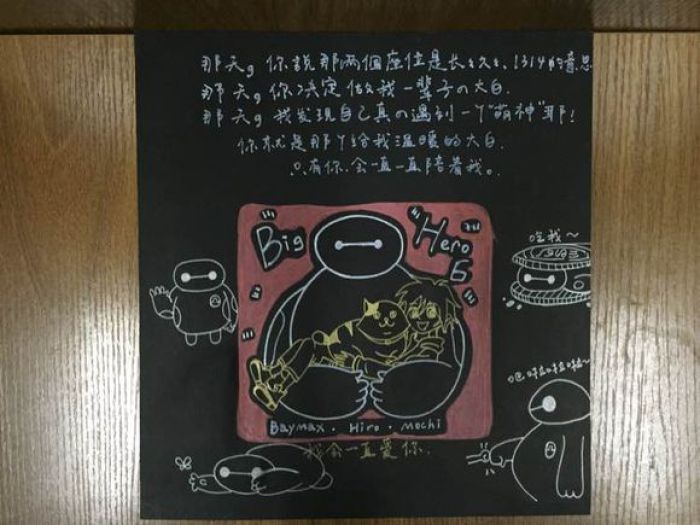 那天，你說那兩個座位是长长久久、1314的意思
那天，你决定做我一辈子の大白.
那天，我发现自己真の遇到一个"萌神"耶!
你就是那个给我温暖的大白.
只有你.会一直一直陪着我。
Big
Hero
6
吃我~
吧啦啦啦啦~
Baymax · Hiro · Mochi
我会一直爱你.